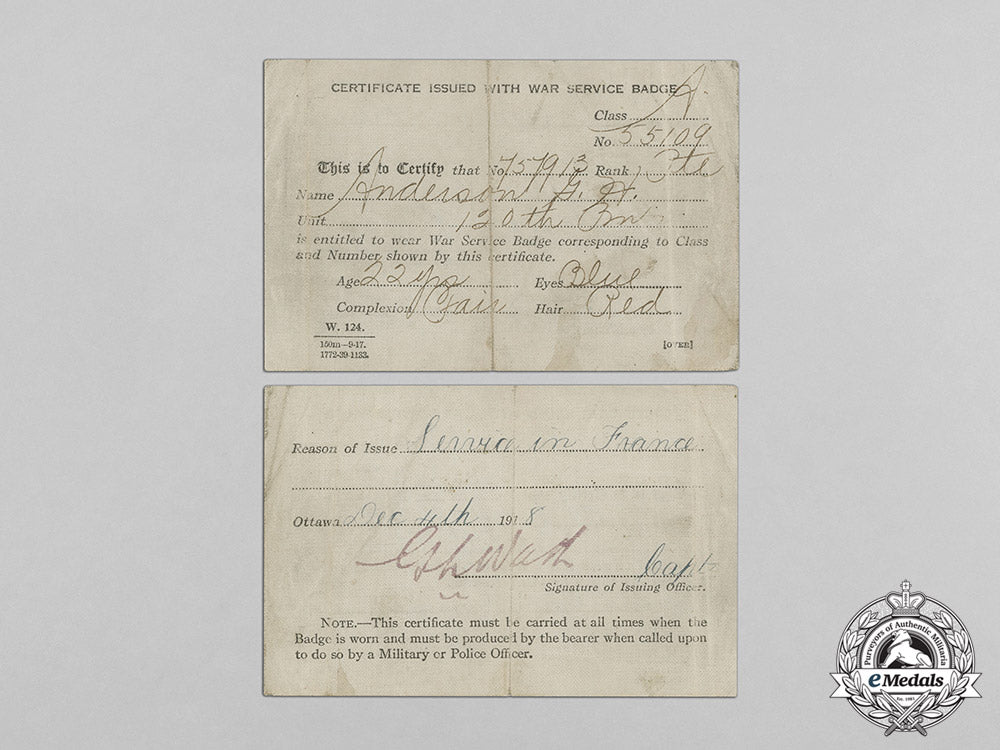 CERTIFICATE ISSUED WITH WAR SERVICE BADGE
Class A.
No. 55109
This is to Certify that No. 757913 Rank Pte
Name Anderson G. H.
Unit 120th
is entitled to wear War Service Badge corresponding to Class
and Number shown by this certificate.
Age 22 yrs Eyes Blue
Complexion Fair Hair Red
W. 124.
150m-9-17.
1772-39-1133.
[OVER]
Reason of Issue Service in France
Ottawa Dec 4th 1918
Capt
Signature of Issuing Officer.
NOTE.—This certificate must be carried at all times when the
Badge is worn and must be produced by the bearer when called upon
to do so by a Military or Police Officer.
Purveyors of Authentic Militaria
eMedals